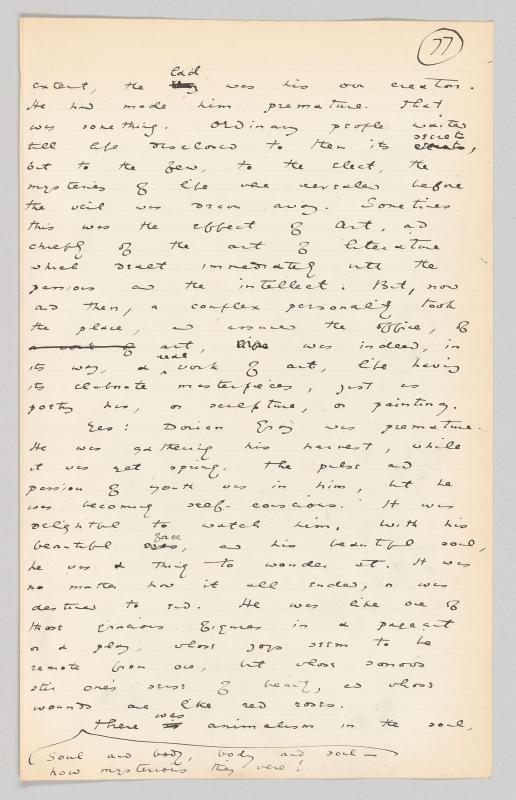 77
lad
extent, the was his own creation.
He had made him premature. That
was something. Ordinary people waited
secrets
till life disclosed to them its
but to the few, to the elect, the
mysteries of life were revealed before
the veil was drawn away. Sometimes
this was the effect of Art, and
chiefly of the art of literature
which dealt immediately with the
passions and the intellect. But, now
and then, a complex personality took
the place, and assumed the office, of
a work of art, life was indeed, in
real
its way, a work of art, life having
its elaborate masterpieces, just as
poetry has, or sculpture, or painting.
Yes: Dorian Gray was premature.
He was gathering his harvest, while
it was yet spring. The pulse and
passion of youth was in him, but he
was becoming self-conscious. It was
delightful to watch him. With his
face
beautiful and his beautiful soul,
he was a thing to wonder at. It was
no matter how it all ended, or was
destined to end. He was like one of
those gracious figures in a pageant
or a play, whose joys seem to be
remote from one, but whose sorrows
stir one's sense of beauty, and whose
wounds are like red roses.
was
There is animalism in the soul,
Soul and body, body and soul—
how mysterious they were!